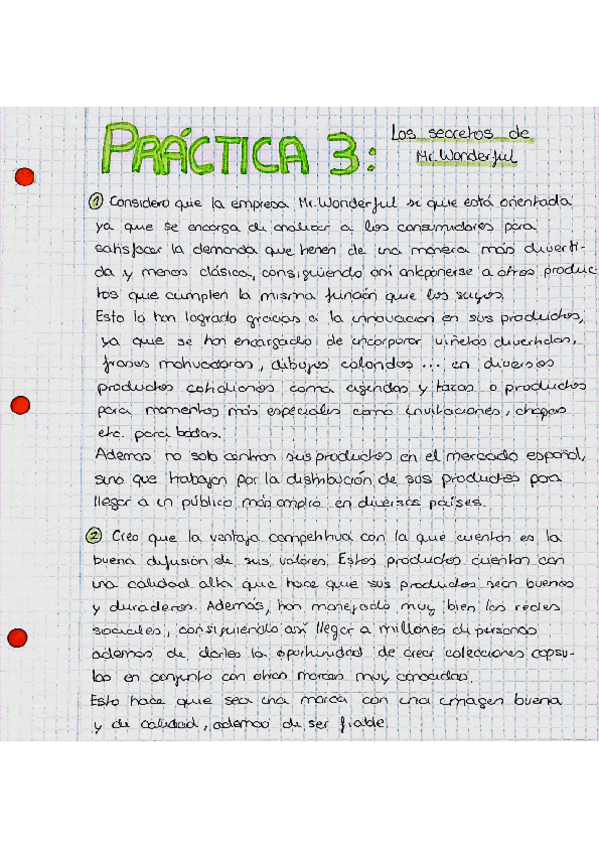 PRÁCTICA 3: Los secretos de
Mr. Wonderful
① Considero que la empresa Mr. Wonderful si que está orientada
ya que se encarga de analizar a los consumidores para
satisfacer la demanda que tienen de una manera más diverti-
da y menos clásica, consiguiendo así anteponerse a otros produc-
tos que cumplen la misma función que los suyos.
Esto lo han logrado gracias a la innovación en sus productos,
ya que se han encargado de incorporar viñetas divertidas,
frases motivadoras, dibujos coloridos... en diversos
productos cotidianos como agendas y tazas o productos
para momentos más especiales como invitaciones, chapas
etc. para bodas.
Además no solo centran sus productos en el mercado español,
sino que trabajan por la distribución de sus productos para
llegar a un público más amplio en diversos países.
② Creo que la ventaja competitiva con la que cuentan es la
buena difusión de sus valores. Estos productos cuentan con
una calidad alta que hace que sus productos sean buenos
y duraderos. Además, han manejado muy bien las redes
sociales, consiguiendo así llegar a millones de personas
además de darles la oportunidad de crear colecciones cápsu-
las en conjunto con otras marcas muy conocidas.
Esto hace que sea una marca con una imagen buena
y de calidad, además de ser fiable.